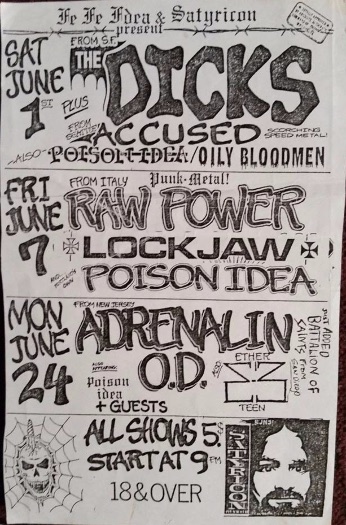 Fe Fe Fdea & Satyricon
present
SAT
JUNE
1ST
FROM S.F.
THE DICKS
PLUS
FROM SEATTLE
ACCUSED
SCORCHING
SPEED METAL!
ALSO POISON IDEA / OILY BLOODMEN
FRI
JUNE
7
FROM ITALY
Punk-Metal!
RAW POWER
LOCKJAW
POISON IDEA
MON
JUNE
24
FROM NEW JERSEY
ADRENALIN
O.D.
ALSO
APPEARING
Poison
idea
+ GUESTS
ALSO
ETHER
TEEN
JUST ADDED
BATTALION OF
SAINTS FROM
SAN DIEGO
ALL SHOWS 5.$
START AT 9 PM
18 & OVER
SATYRICON